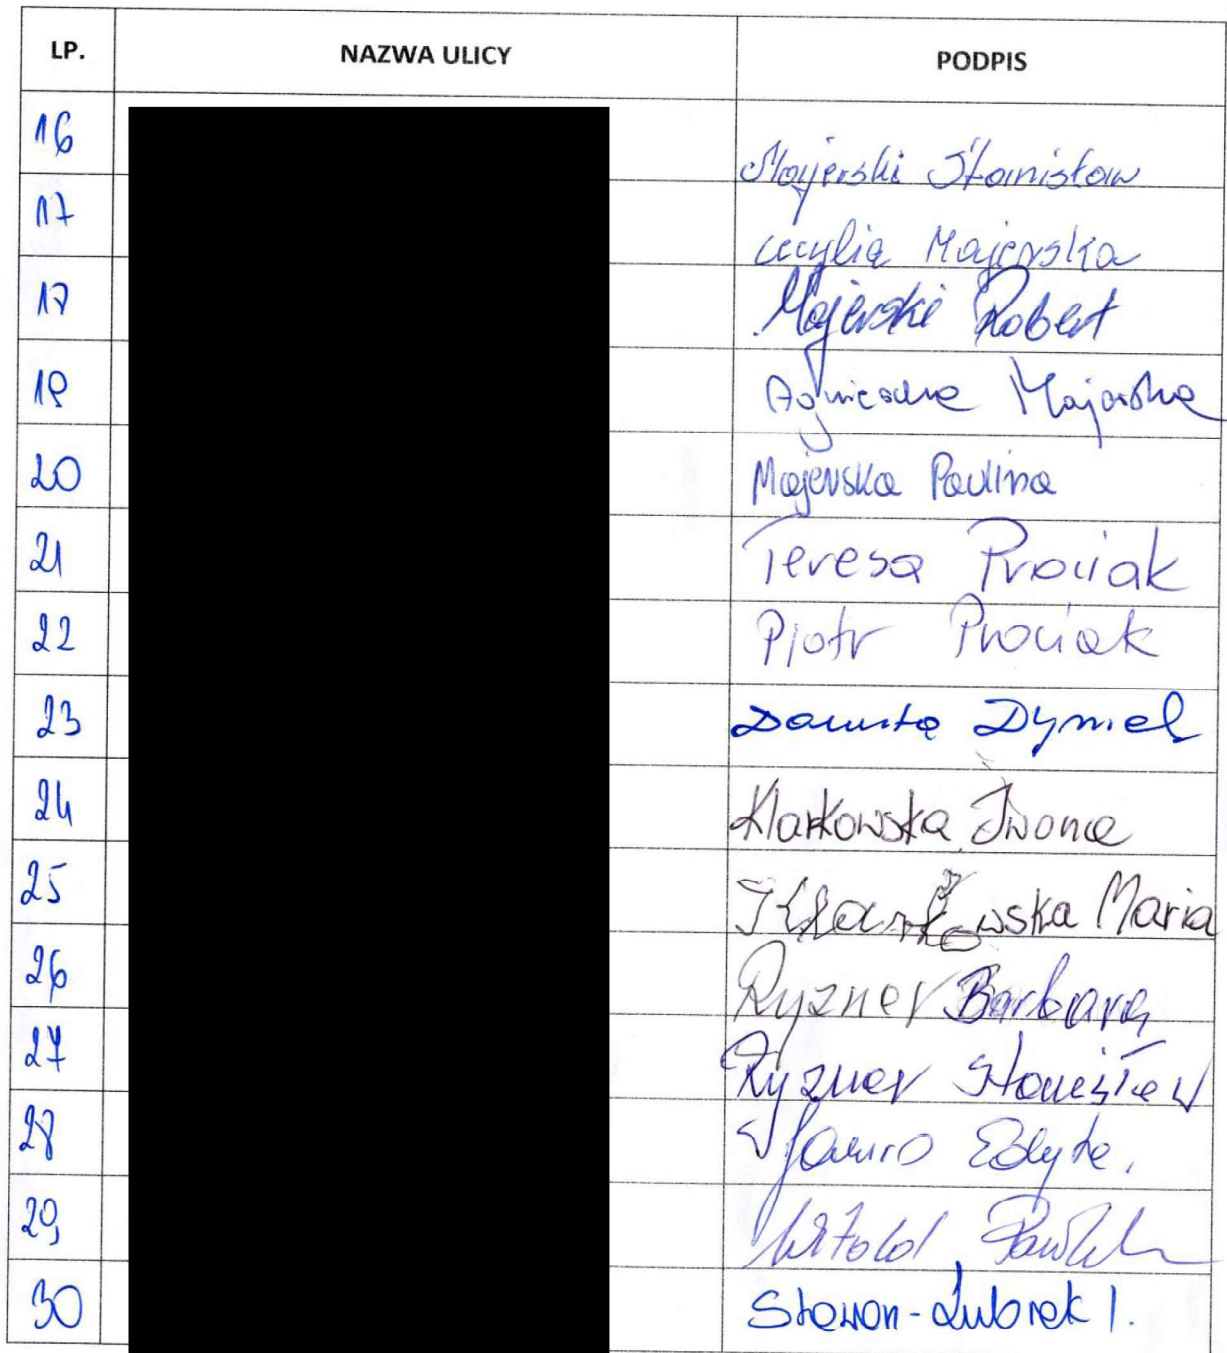 LP. NAZWA ULICY PODPIS
16 Majerski Stanisław
17 Cecylia Majerska
18 Majerski Robert
19 Agnieszka Majerska
20 Majerska Paulina
21 Teresa Prociak
22 Piotr Prociak
23 Danuta Dymel
24 Klarkowska Iwona
25 Klarkowska Maria
26 Ryzner Barbara
27 Ryzner Stanisław
28 Edyta
29 Witold
30 I.